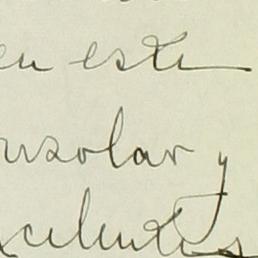 en este
nsolar y
xcelentes